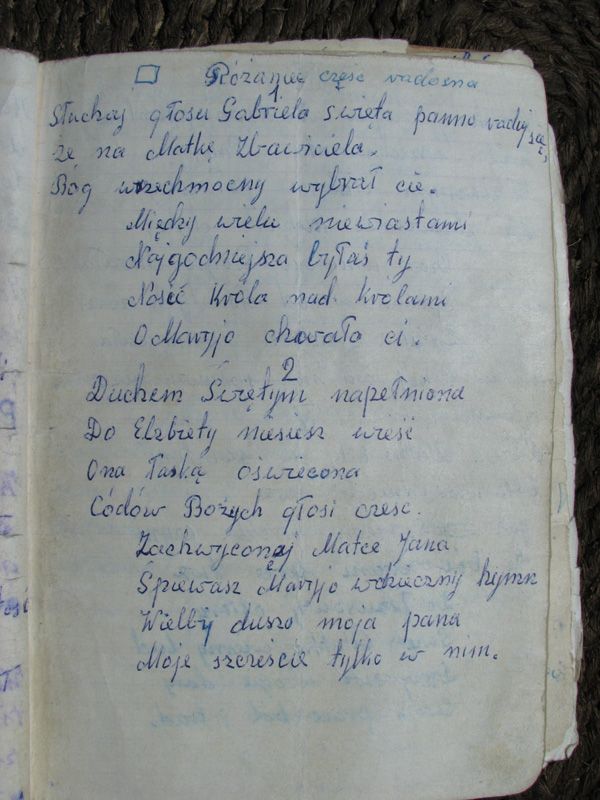 Różaniec część radosna
1
Słuchaj głosu Gabriela święta panno raduj się,
że na Matkę Zbawiciela.
Bóg wszechmocny wybrał cie.
Między wielu niewiastami
Najgodniejsza byłaś ty
Nosić Króla nad królami
O Maryjo chwała ci.
2
Duchem Świętym napełniona
Do Elżbiety niesiesz wieść
Ona łaską oświecona
Codów Bożych głosi czesc.
Zachwyconej Matce Jana
Śpiewasz Maryjo wdzięczny hymn
Wielby duszo moja pana
Moje szczeście tylko w nim.